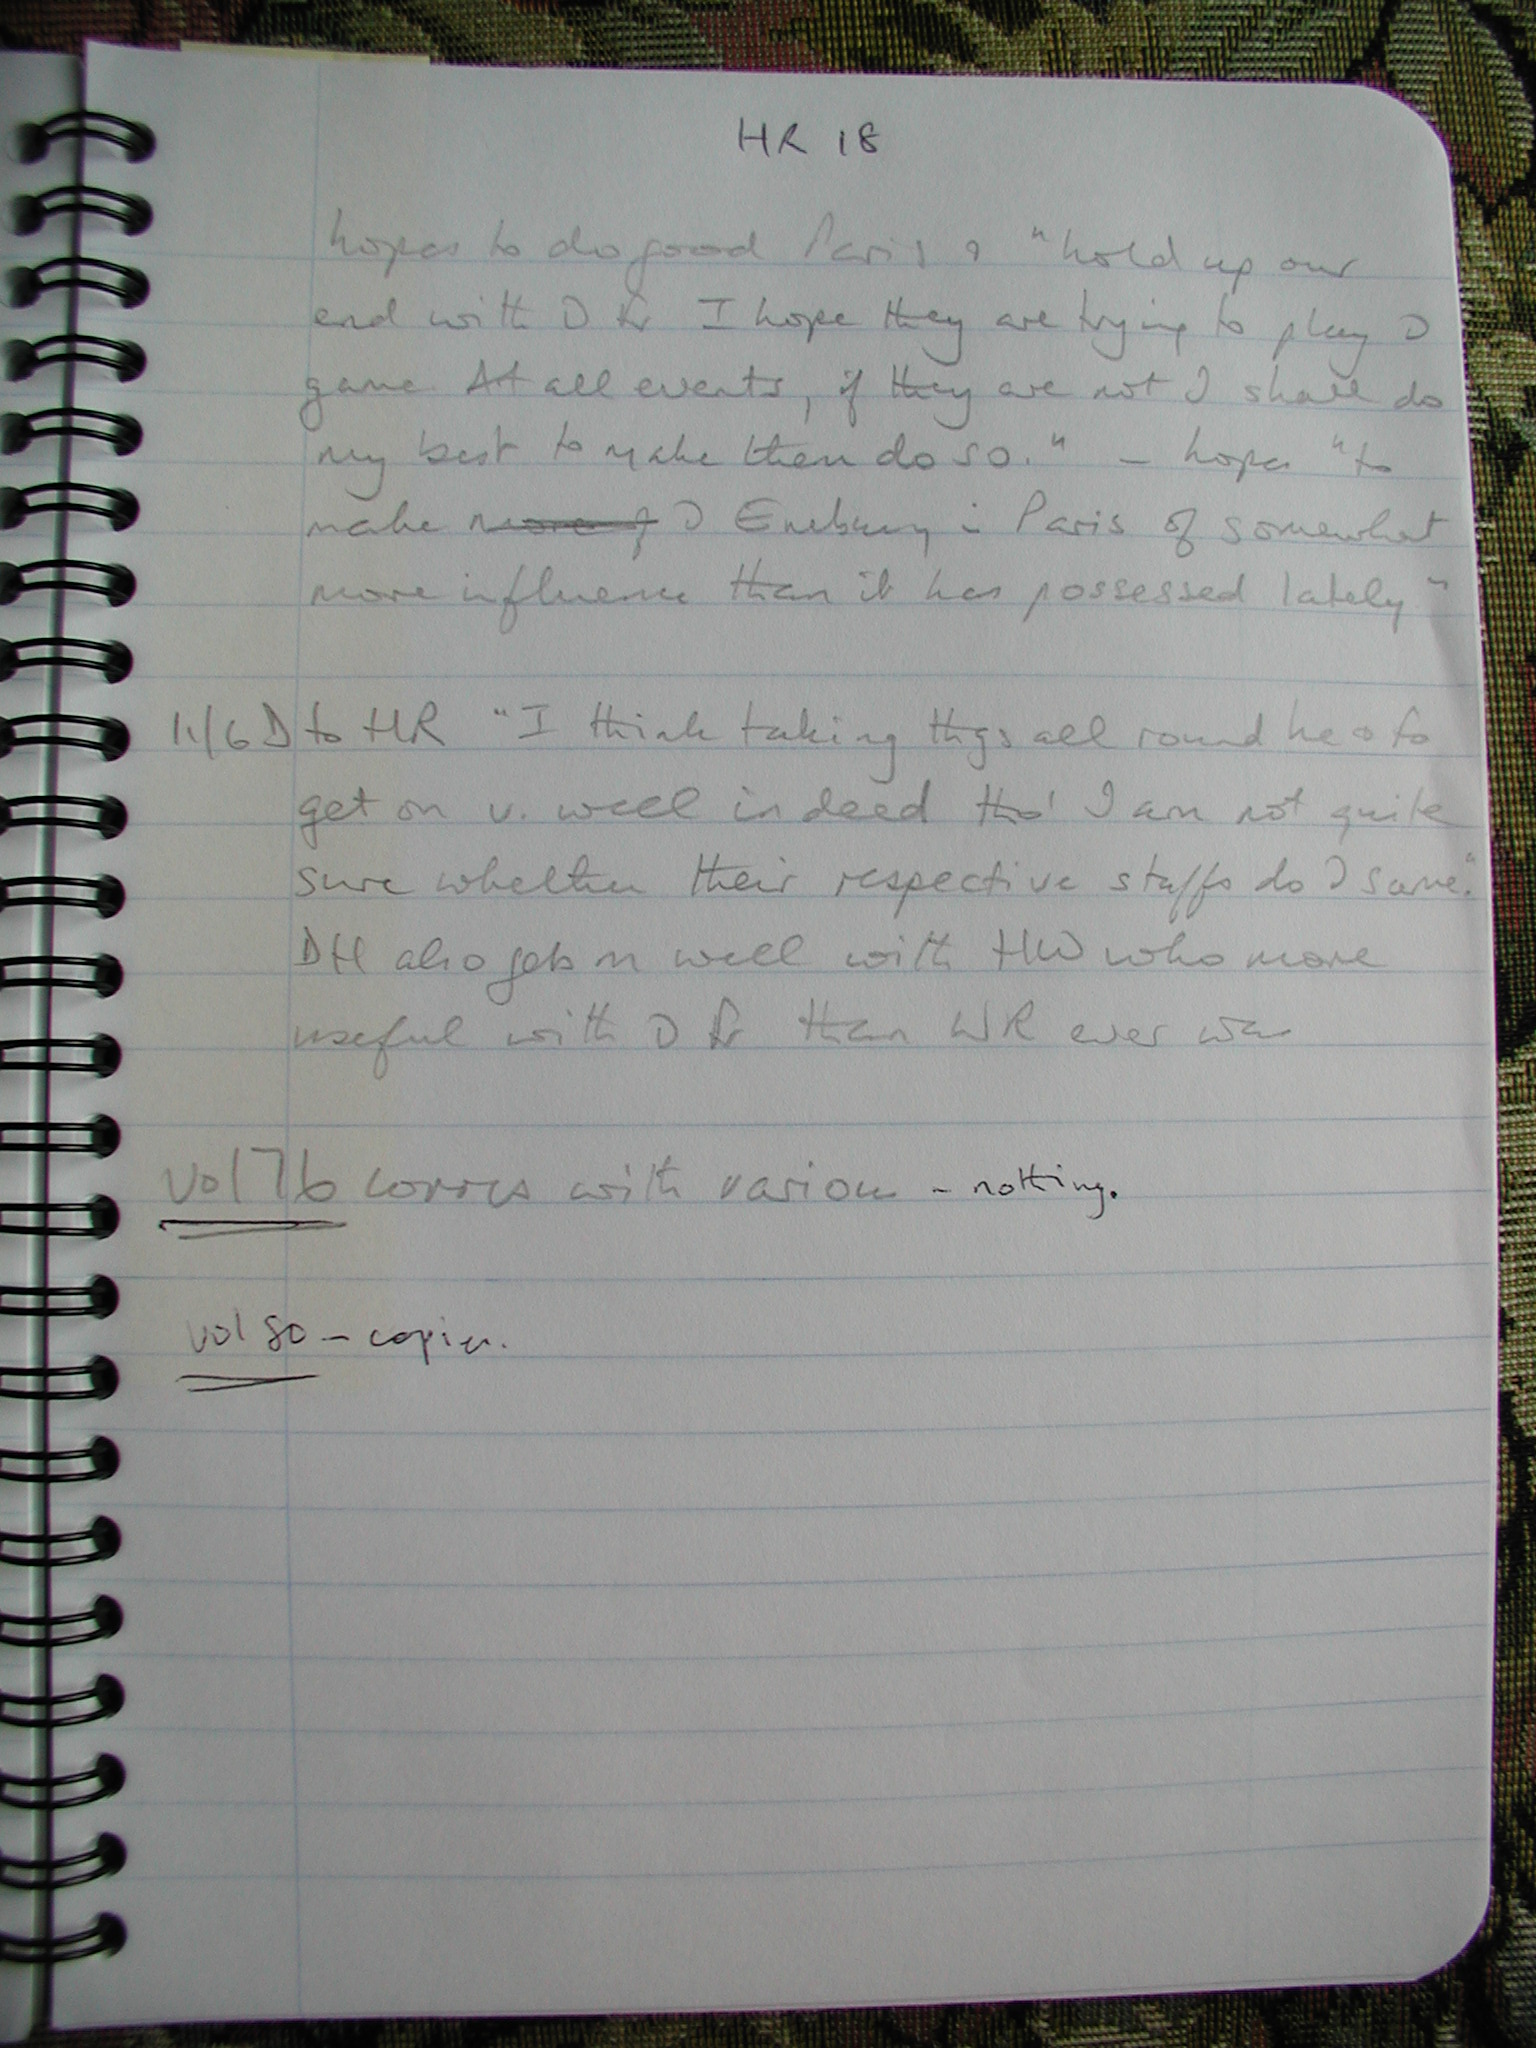 HR 18
hopes to do good Paris & "hold up our
end with D Fr I hope they are trying to play D
game At all events, if they are not I shall do
my best to make them do so." – hopes "to
make more of D Embassy in Paris of somewhat
more influence than it has possessed lately"
11/6 D to HR "I think taking thgs all round he & fo
get on v. well indeed tho' I am not quite
sure whether their respective staffs do D same."
DH also gets on well with HW who more
useful with D Fr than WR ever was
Vol 76 corres with various – nothing.
Vol 80 – copies.